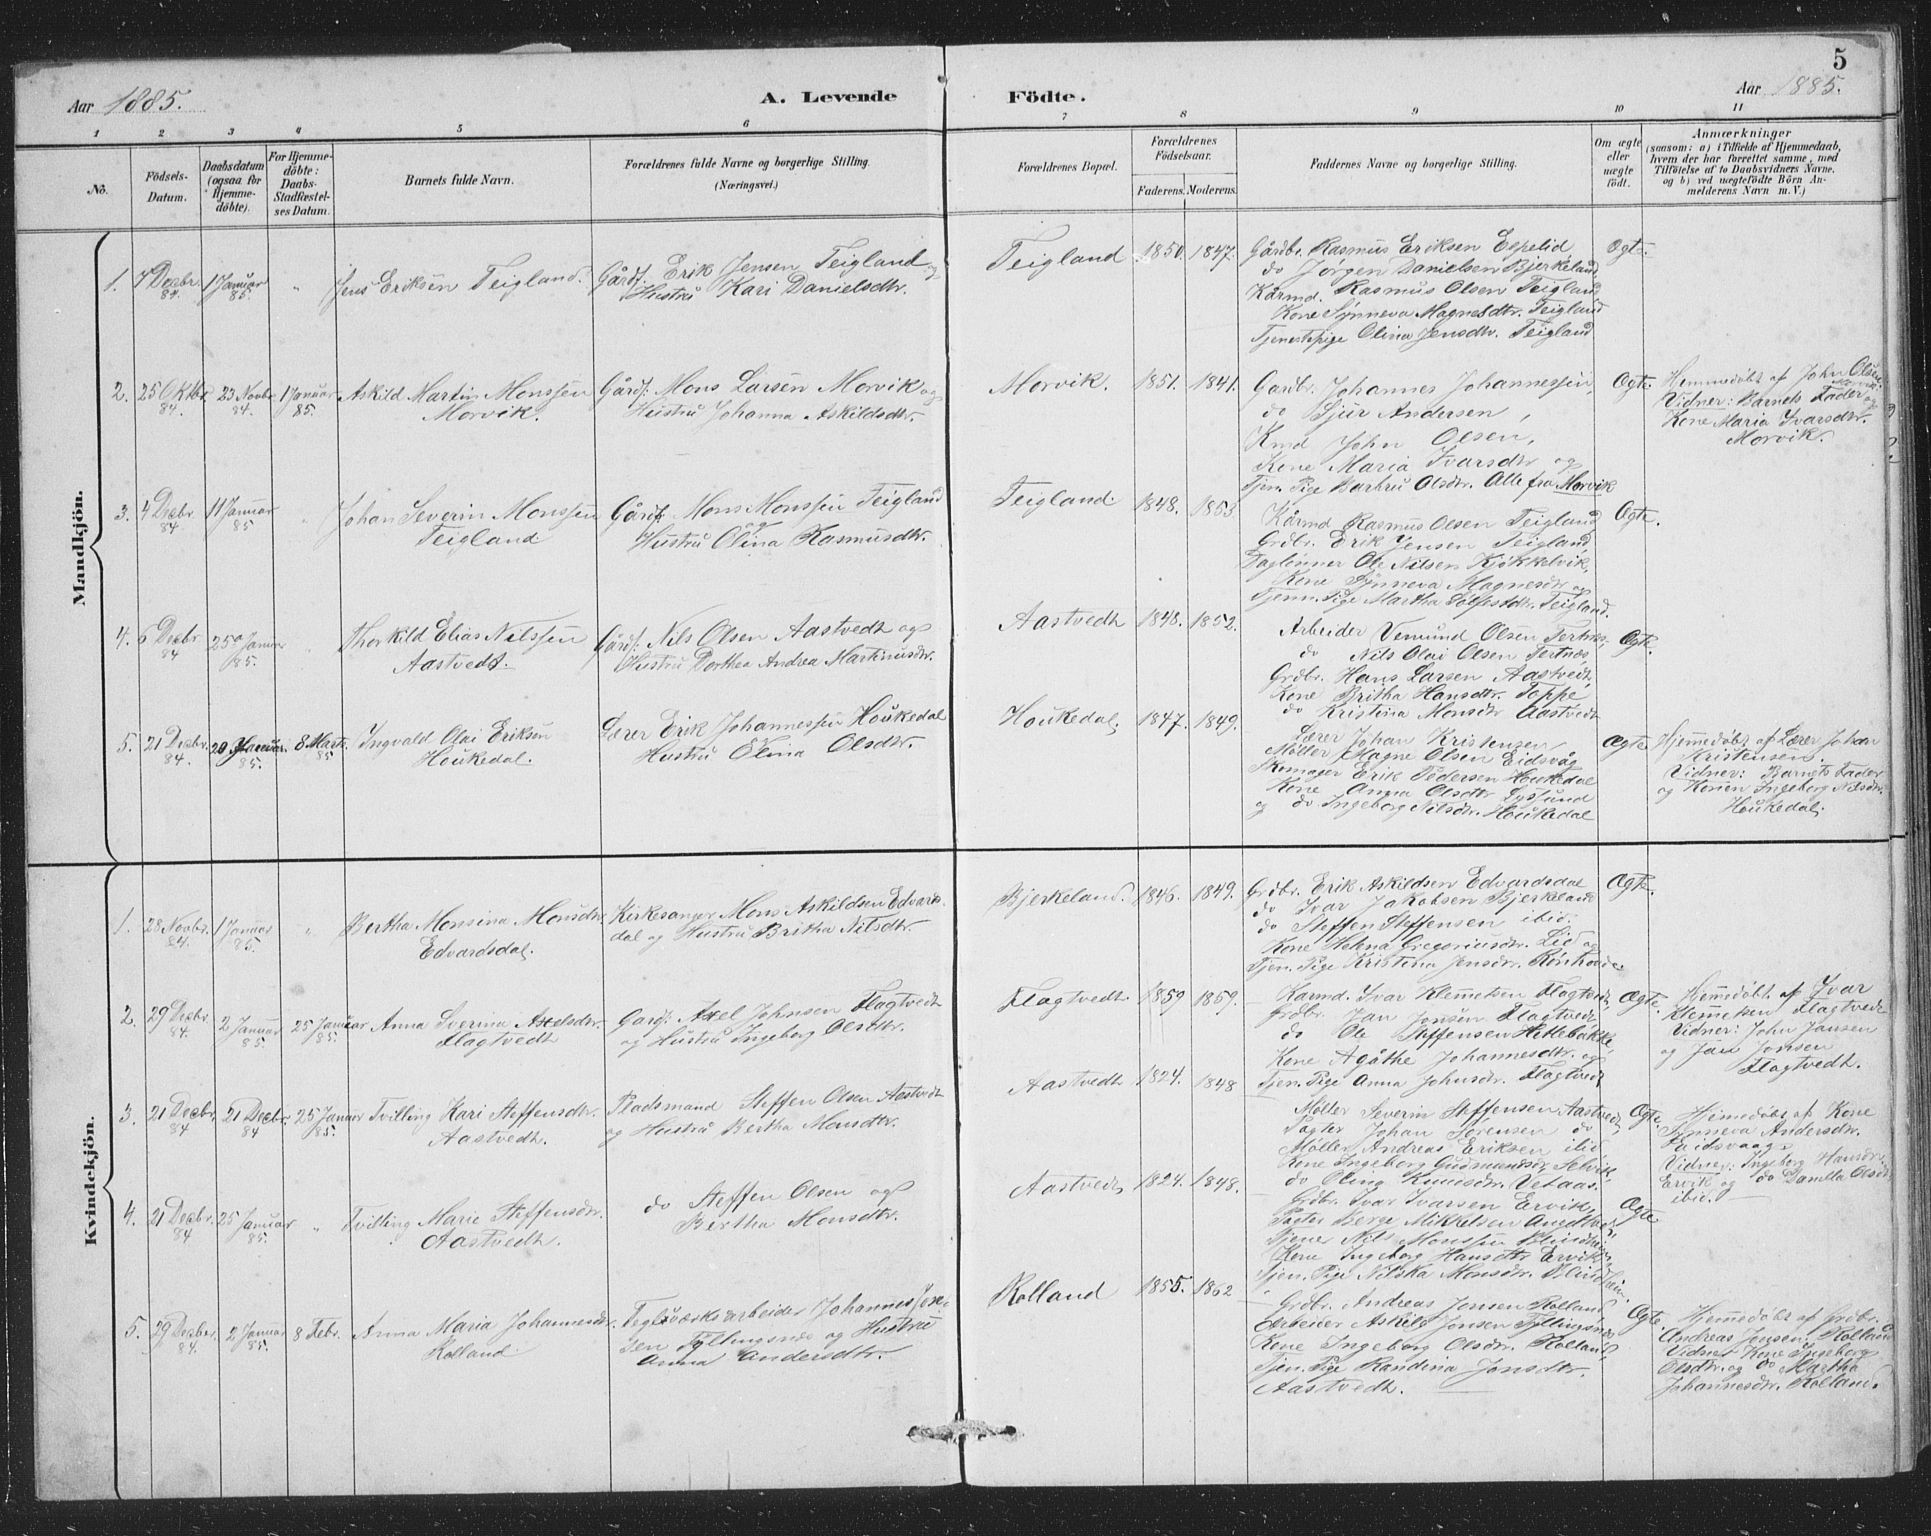 5
Aar 1885.
A. Levende Födte.
Aar 1885.
1 2 3 4 5 6 7 8 9 10 11
No.
Födsels-
Datum.
Daabsdatum
(ogsaa for
Hjemme-
döbte).
For Hjemme-
döbte:
Daabs-
Stadfestel-
ses Datum.
Barnets fulde Navn.
Forældrenes fulde Navne og borgerlige Stilling.
(Næringsvei.)
Forældrenes Bopæl.
Forældrenes
Födselsaar.
Faderens. Moderens.
Faddernes Navne og borgerlige Stilling.
Om ægte
eller
uægte
födt.
Anmærkninger
(saasom: a) i Tilfælde af Hjemmedaab,
hvem der har forrettet samme, med
Tilföielse af to Daabsvidners Navne,
og b) ved uægtefödte Börn An-
melderens Navn m. V.)
Mandkjön.
1. 7 Decbr. 84. 1 Januar 85. " Jens Eriksen Teigland.
Gårdf: Erik Jensen Teigland og
Hustru Kari Danielsdtr.
Teigland 1850. 1847.
Gårdbr. Rasmus Eriksen Espelid
do Jørgen Danielsen Bjerkeland
Kårmd. Rasmus Olsen Teigland
Kone Synneva Magnesdtr. Teigland
Tjenestepige Olina Jensdtr. Teigland
Ægte.
2. 25 Oktbr. 84. 23 Novbr. 84. 1 Januar 85. Askild Martin Monssen
Morvik.
Gårdf: Mons Larsen Morvik og
Hustru Johanna Askildsdtr.
Morvik. 1851. 1841.
Gardbr. Johannes Johannessen,
do Sjur Andersen,
Kmd John Olsen,
Kone Maria Ivarsdtr og
Tjen. Pige Barbru Olsdtr. Alle fra Morvik
Ægte.
Hjemmedøbt af John Olsen
Morvik
Vidner: Barnets Fader og
Kone Maria Ivarsdtr.
Morvik.
3. 4 Decbr. 84 11 Januar 85 " Johan Severin Monssen
Teigland
Gårdf: Mons Monssen Teigland
og
Hustru Olina Rasmusdtr.
Teigland. 1848. 1853
Kårmd Rasmus Olsen Teigland
Grdbr. Erik Jensen Teigland,
Daglønner Ole Nilsen Kjøkkelvik,
Kone Synneva Magnesdtr og
Tjenn. Pige Martha Teigland.
Ægte.
4. 6 Decbr 84 25 Januar 85. " Thorkild Elias Nilssen
Aastvedt.
Gårdf: Nils Olsen Aastvedt og
Hustru Dorthea Andrea Martinusdtr.
Aastvedt 1848. 1852.
Arbeider Vemund Olsen Tertnes,
do Nils Olai Olsen Tertnæs,
Grdbr. Hans Larsen Aastvedt,
Kone Britha Hansdtr. Toppe
do Kristina Monsdtr Aastvedt
Ægte.
5. 21 Decbr. 84. Januar. 85. 8 Marts 85 Ingvald Olai Eriksen
Houkedal.
Lærer Erik Johannessen Houkedal
Hustru Elina Olsdtr.
Houkedal, 1847. 1849.
Lærer Johan Kristensen,
Møller Magne Olsen Eidsvåg
Skomager Erik Pedersen Houkedal
Kone Anna Olsdtr
og do Ingeborg Nilsdtr. Houkedal
Ægte
Hjemedøbt af Lærer Johan
Kristensen.
Vidner: Barnets Fader
og Konen Ingeborg Nilsdtr.
Houkedal.
Kvindekjön.
1. 28 Novbr. 84. 1 Januar 85. " Bertha Monsina Monsdtr
Edvardsdal.
Kirkesanger Mons Askildsen Edvards-
dal og Hustru Britha Nilsdtr.
Bjerkeland. 1846. 1849.
Grdbr. Erik Askildsen Edvardsdal
do Ivar Jakobsen Bjerkeland
do Steffen Steffensen ibid.
Kone Helena Gregoriusdtr. Lid og
Tjen. Pige Kristina Jensdtr.
Ægte.
2. 29 Decbr. 84. 2 Januar 85. 25 Januar 85. Anna Sverina Axelsdtr.
Flagtvedt
Gardf: Axel Johnsen Flagtvedt
og Hustru Ingeborg Olsdtr.
Flagtvedt. 1859 1859.
Karmd. Ivar Klemetsen Flagtvedt,
Grdbr. Jan Jonsen Flagtvedt
do Ole Steffensen Hettebakke,
Kone Agåthe Johannesdtr. og
Tjen. Pige Anna Johnsdtr. Flagtvedt
Ægte.
Hjemedøbt af Ivar
Klemetsen Flagtvedt
Vidner: John Jansen
og Jan Jonsen
Flagtvedt.
3. 21 Decbr. 84 21 Decbr. 84 25 Januar 85. Tvilling Kari Steffensdtr.
Aastvedt.
Pladsmand Steffen Olsen Aastvedt
og Hustru Bertha Monsdtr.
Aastvedt 1824. 1848
Møller Severin Steffensen Aastvedt,
Johan Sørensen do
Møller Andreas Eriksen ibid
Kone Ingeborg Gudmundsdtr
do Olina Knudsdtr. Vetaas.
Ægte.
Hjemedøbt af Kone
Synneva Andersdtr.
Vidner: Ingeborg Hansdtr.
Ervik og do Danilla Olsdtr
ibid.
4. 21 Decbr. 84 25 Januar 85. " Tvilling Marie Steffensdtr.
Aastvedt.
do Steffen Olsen og
Bertha Monsdtr.
Aastvedt 1824. 1848.
Grdbr. Ivar Ivarsen Ervik,
Børge Mikkelsen
Tjener Nils Monssen
Kone Ingeborg Hansdtr Ervik
Tjen. Pige Nilska Monsdtr.
Ægte
5. 29 Decbr. 84. 2 Januar 85. 8 Febr. Anna Maria Johannesdtr.
Rolland.
Teglværksarbeider Johannes Jen-
sen Tyllingsnes og Hustru
Anna Andersdtr.
Rolland 1855. 1862
Grdbr. Andreas Jonsen Rolland
Arbeider Askild Jonsen Tyllingsnes
Kone Ingeborg Olsdtr. Rolland,
Tjen. Pige Randina Jonsdtr.
Aastvedt.
Ægte.
Hjemedøbt af Grdbr.
Andreas Jonsen Rolland
Vidner Kone Ingeborg
Olsdtr. og do Martha
Johannesdtr. Rolland.